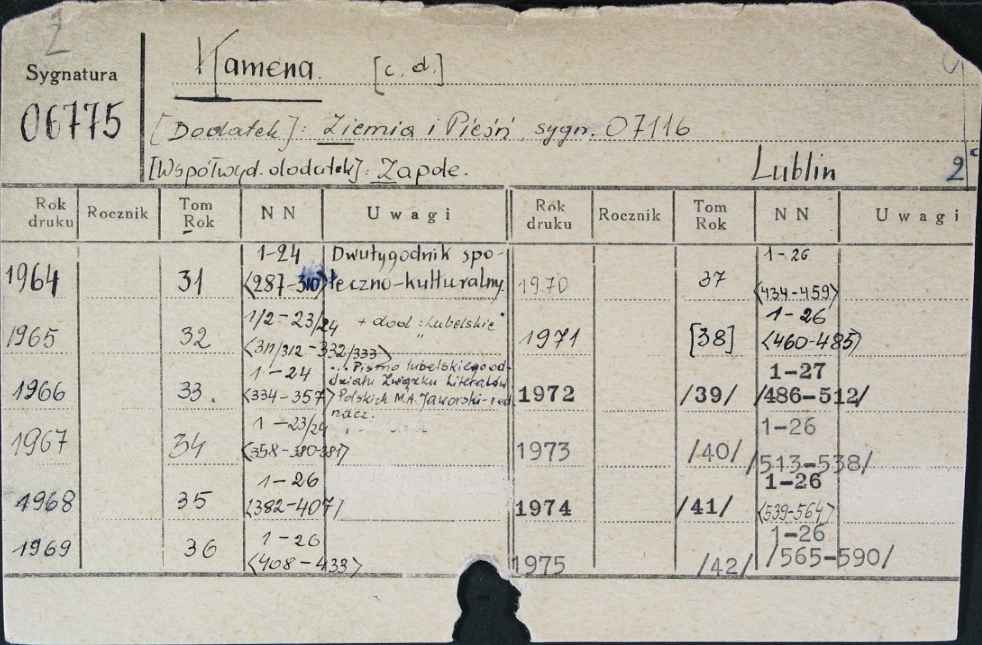 Z
Sygnatura
06775
Kamena. [c. d.]
[Dodatek]: Ziemia i Pieśń sygn. 07116
[Współwyd. dodatek]: Zapole.
Lublin 2
Rok druku Rocznik Tom Rok NN Uwagi Rok druku Rocznik Tom Rok NN Uwagi
1964 31 1-24 <287-310> Dwutygodnik spo-
łeczno-kulturalny
1965 32 1/2-23/24 <311/312-332/333> + dod: "Lubelskie"
1966 33. 1-24 <334-357> ... Pismo lubelskiego od-
działu Związku Literatów
Polskich M.A. Jaworski-red.
nacz.
1967 34 1-23/24 <358-380-381>
1968 35 1-26 <382-407/
1969 36 1-26 <408-433>
1970 37 1-26 <434-459>
1971 [38] 1-26 <460-485>
1972 /39/ 1-27 /486-512/
1973 /40/ 1-26 /513-538/
1974 /41/ 1-26 <539-564>
1975 /42/ 1-26 /565-590/